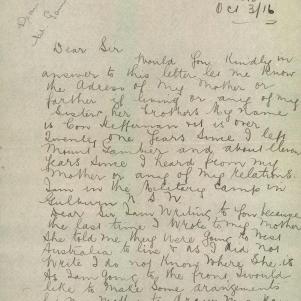 Oct 3/16
Dear Sir
Would you kindly in
answer to this letter let me Know
the Adress of My Mother or
farther if living or any of my
Sisters or Brothers My Name
is Con Heffernan it is over
twenty one years Since I left
Mount Gambier and about eleven
years Since I heard from My
Mother or any of My Relations.
I am in the Military Camp in
Goulburn N S W
Dear Sir, I am Writing to you because
the last time I Wrote to my Mother
She told me they Were going to West
Australia to live so as I did not
Write I do not Know Where She is
As I am going to the front I would
like to Make Some arangements